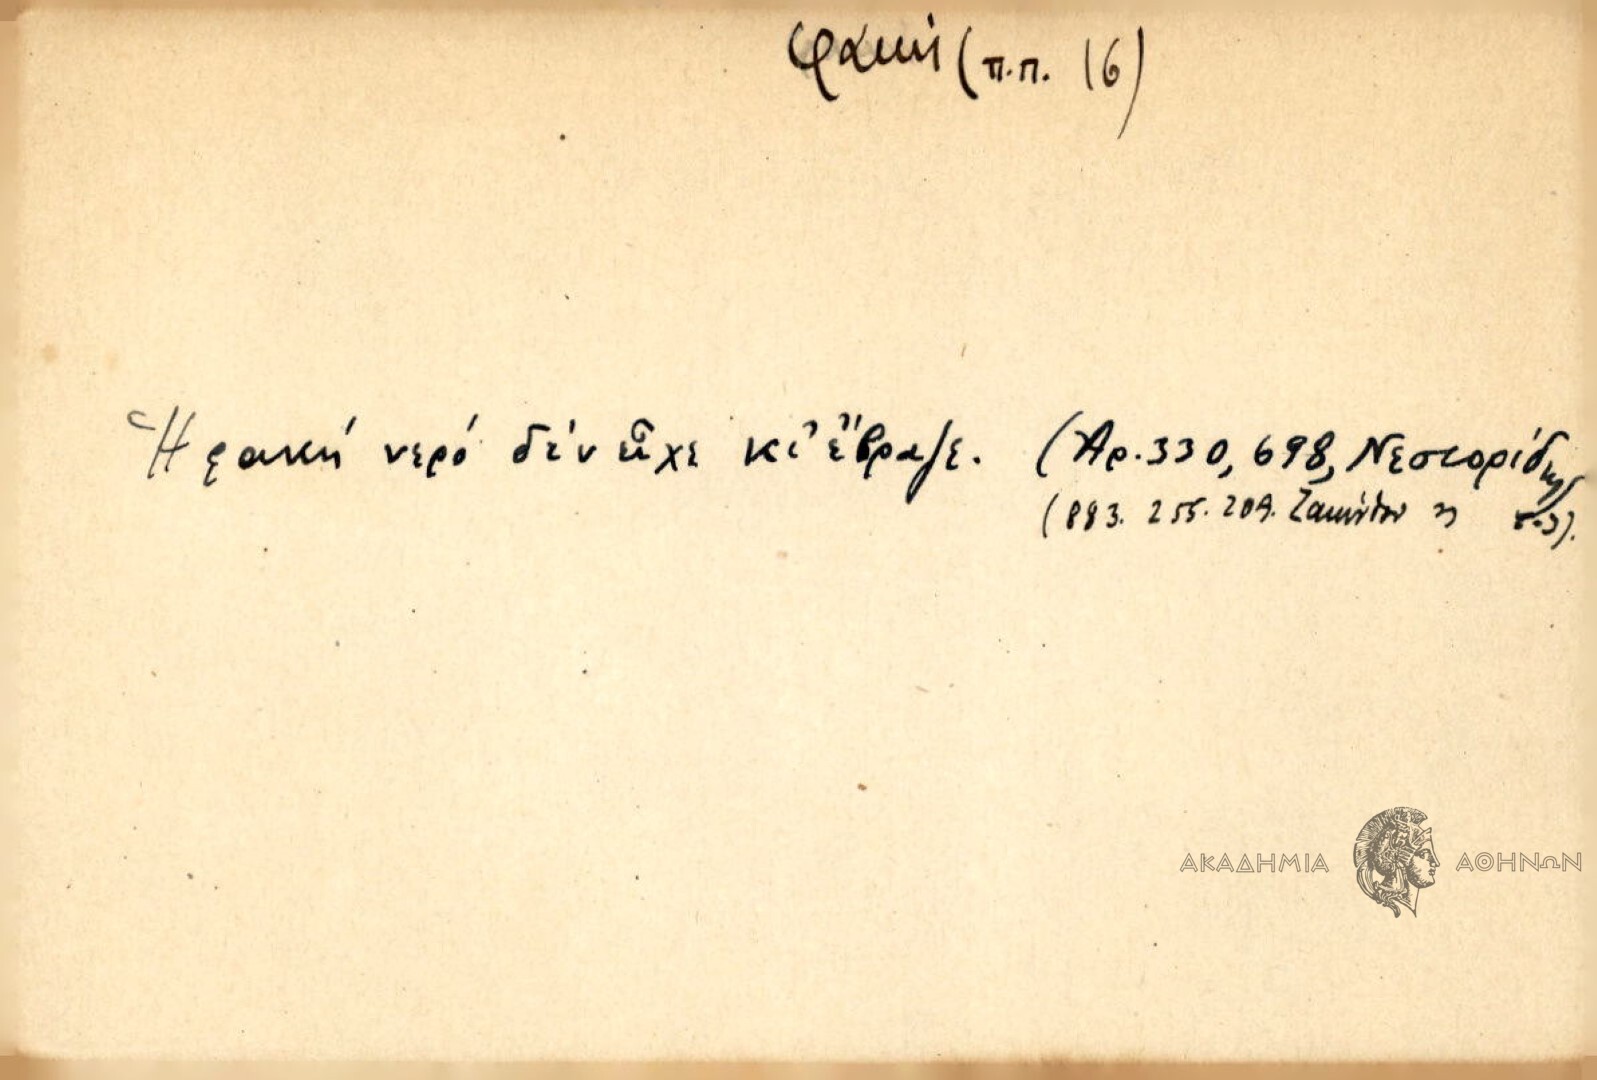 φακή (π.π. 16)
Ἡ φακή νερό δέν εἶχε κι' ἔβραζε. (Ἀρ. 330, 698, Νεστορίδης
(883. 255. 209. Ζακύνθου
ΑΚΑΔΗΜΙΑ ΑΘΗΝΩΝ